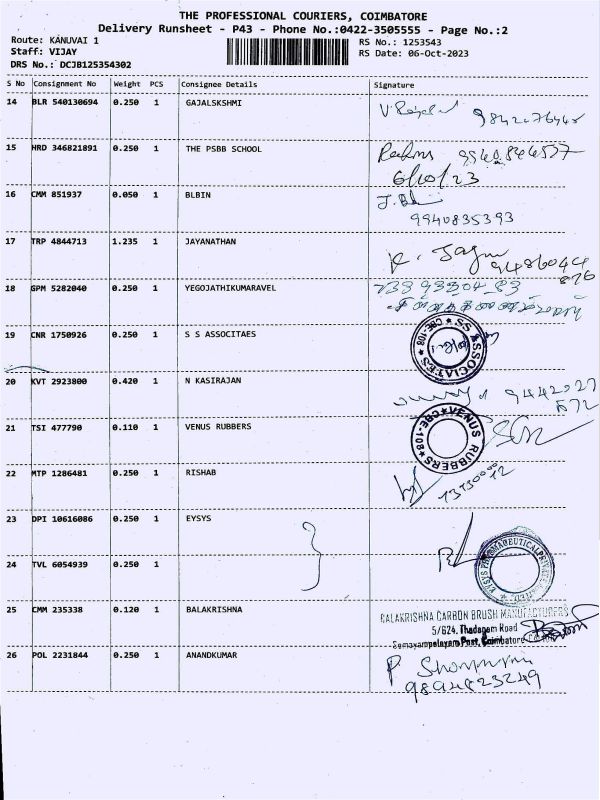 THE PROFESSIONAL COURIERS, COIMBATORE
Delivery Runsheet - P43 - Phone No.:0422-3505555 - Page No.:2
Route: KANUVAI 1
RS No.: 1253543
Staff: VIJAY
RS Date: 06-Oct-2023
DRS No.: DCJB125354302
S No Consignment No Weight PCS Consignee Details Signature
14 BLR 540130694 0.250 1 GAJALSKSHMI
15 HRD 346821891 0.250 1 THE PSBB SCHOOL
6/10/23
16 CMM 851937 0.050 1 BLBIN
9940835393
17 TRP 4844713 1.235 1 JAYANATHAN
18 GPM 5282040 0.250 1 YEGOJATHIKUMARAVEL
19 CNR 1750926 0.250 1 S S ASSOCITAES
SS ASSOCIATES CBE-108
20 KVT 2923800 0.420 1 N KASIRAJAN
21 TSI 477790 0.110 1 VENUS RUBBERS
VENUS RUBBERS CBE-108
22 MTP 1286481 0.250 1 RISHAB
23 DPI 10616086 0.250 1 EYSYS
24 TVL 6054939 0.250 1
25 CMM 235338 0.120 1 BALAKRISHNA
BALAKRISHNA CARBON BRUSH MANUFACTURERS
5/624, Thadagam Road
Somayampalayam Post, Coimbatore
26 POL 2231844 0.250 1 ANANDKUMAR
9894823249